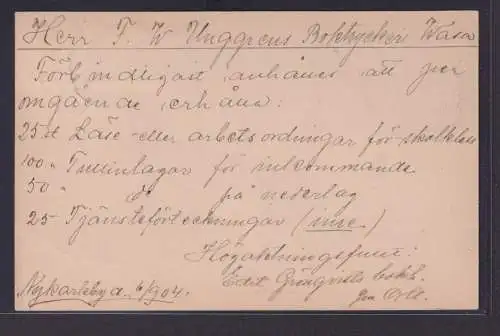 Herr F. W. Unggrens Boktryckeri Wasa
Förbindligast anhålles att per
omgående erhålla:
25 st Läse- eller arbetsordningar för skolklass
100 " Tullinlagor för inkommande
50 " do på nederlag
25 - Tjänsteförteckningar (nuv.)
Högaktningsfullt:
Nykarleby d. 6/9 04.